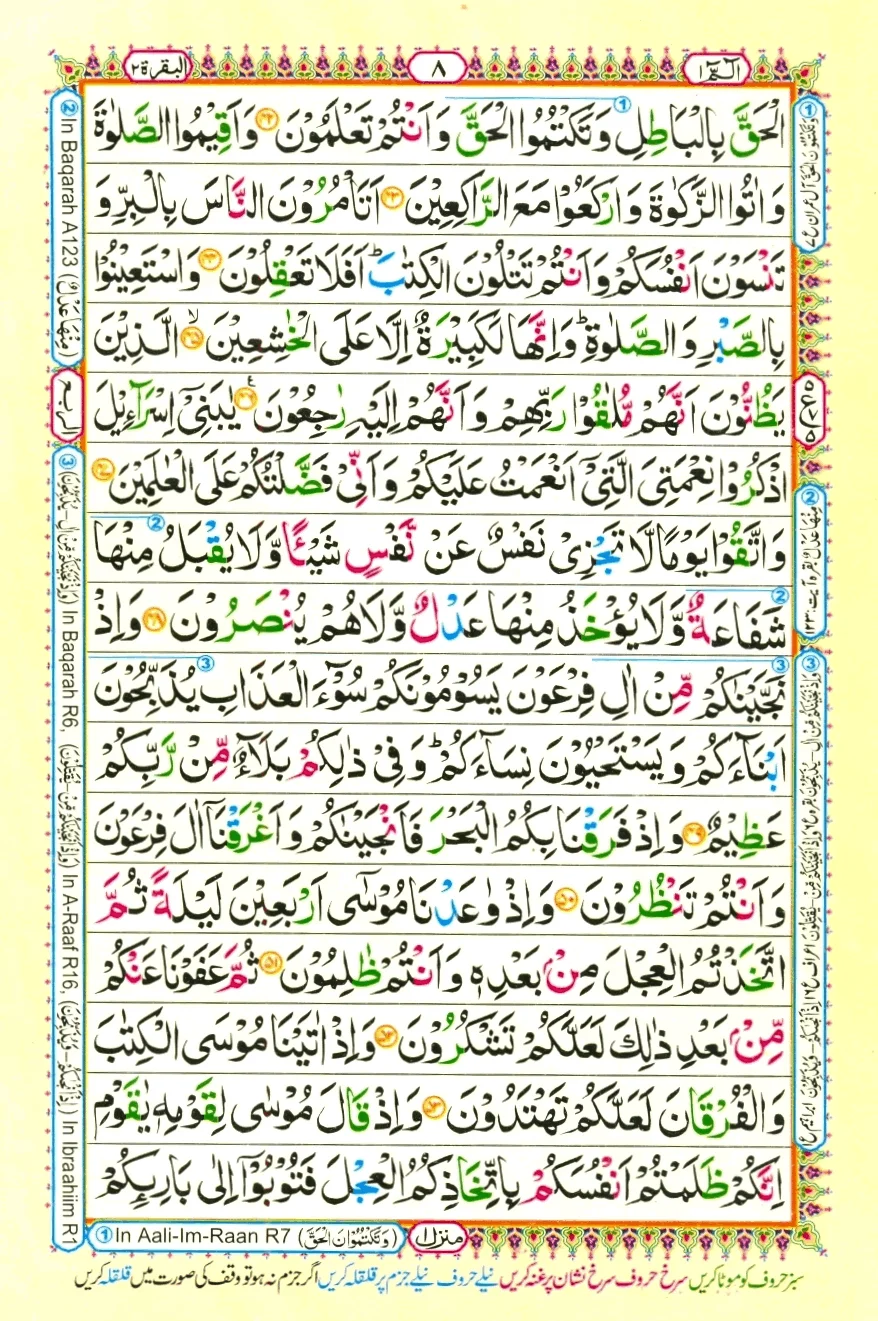 البقرة ٢
٨
الٓمّٓ ١
الْحَقَّ بِالْبَاطِلِ وَتَكْتُمُوا الْحَقَّ وَاَنْتُمْ تَعْلَمُوْنَ ﴿۴۲﴾ وَاَقِيْمُوا الصَّلٰوةَ
وَاٰتُوا الزَّكٰوةَ وَارْكَعُوْا مَعَ الرّٰكِعِيْنَ ﴿۴۳﴾ اَتَاْمُرُوْنَ النَّاسَ بِالْبِرِّ وَ
تَنْسَوْنَ اَنْفُسَكُمْ وَاَنْتُمْ تَتْلُوْنَ الْكِتٰبَ ؕ اَفَلَا تَعْقِلُوْنَ ﴿۴۴﴾ وَاسْتَعِيْنُوْا
بِالصَّبْرِ وَالصَّلٰوةِ ؕ وَاِنَّهَا لَكَبِيْرَةٌ اِلَّا عَلَى الْخٰشِعِيْنَ ﴿۴۵﴾ۙ الَّذِيْنَ
يَظُنُّوْنَ اَنَّهُمْ مُّلٰقُوْا رَبِّهِمْ وَاَنَّهُمْ اِلَيْهِ رٰجِعُوْنَ ﴿۴۶﴾ يٰبَنِىْٓ اِسْرَآءِيْلَ
اذْكُرُوْا نِعْمَتِىَ الَّتِىْٓ اَنْعَمْتُ عَلَيْكُمْ وَاَنِّىْ فَضَّلْتُكُمْ عَلَى الْعٰلَمِيْنَ ﴿۴۷﴾
وَاتَّقُوْا يَوْمًا لَّا تَجْزِىْ نَفْسٌ عَنْ نَّفْسٍ شَيْـًٔا وَّلَا يُقْبَلُ مِنْهَا
شَفَاعَةٌ وَّلَا يُؤْخَذُ مِنْهَا عَدْلٌ وَّلَا هُمْ يُنْصَرُوْنَ ﴿۴۸﴾ وَاِذْ
نَجَّيْنٰكُمْ مِّنْ اٰلِ فِرْعَوْنَ يَسُوْمُوْنَكُمْ سُوْٓءَ الْعَذَابِ يُذَبِّحُوْنَ
اَبْنَآءَكُمْ وَيَسْتَحْيُوْنَ نِسَآءَكُمْ ؕ وَفِىْ ذٰلِكُمْ بَلَآءٌ مِّنْ رَّبِّكُمْ
عَظِيْمٌ ﴿۴۹﴾ وَاِذْ فَرَقْنَا بِكُمُ الْبَحْرَ فَاَنْجَيْنٰكُمْ وَاَغْرَقْنَآ اٰلَ فِرْعَوْنَ
وَاَنْتُمْ تَنْظُرُوْنَ ﴿۵۰﴾ وَاِذْ وٰعَدْنَا مُوْسٰٓى اَرْبَعِيْنَ لَيْلَةً ثُمَّ
اتَّخَذْتُمُ الْعِجْلَ مِنْۢ بَعْدِهٖ وَاَنْتُمْ ظٰلِمُوْنَ ﴿۵۱﴾ ثُمَّ عَفَوْنَا عَنْكُمْ
مِّنْۢ بَعْدِ ذٰلِكَ لَعَلَّكُمْ تَشْكُرُوْنَ ﴿۵۲﴾ وَاِذْ اٰتَيْنَا مُوْسَى الْكِتٰبَ
وَالْفُرْقَانَ لَعَلَّكُمْ تَهْتَدُوْنَ ﴿۵۳﴾ وَاِذْ قَالَ مُوْسٰى لِقَوْمِهٖ يٰقَوْمِ
اِنَّكُمْ ظَلَمْتُمْ اَنْفُسَكُمْ بِاتِّخَاذِكُمُ الْعِجْلَ فَتُوْبُوْٓا اِلٰى بَارِئِكُمْ
منزل ۱
① In Aali-Im-Raan R7 (وَتَكْتُمُوْنَ الْحَقَّ)
② In Baqarah A123 (مِنْهَا عَدْلٌ)
الربع
③ (وَاِذْ نَجَّيْنٰكُمْ مِّنْ اٰلِ - يُذَبِّحُوْنَ) In Baqarah R6, (وَاِذْ اَنْجَيْنٰكُمْ مِّنْ - يُقَتِّلُوْنَ) In A-Raaf R16, (اِذْ اَنْجٰىكُمْ - وَيُذَبِّحُوْنَ) In Ibraahiim R1
① وَتَكْتُمُوْنَ الْحَقَّ اٰل عمران ع ۷
② مِنْهَا عَدْلٌ بقرہ آیت ۱۲۳
سبز حروف کو موٹا کریں سرخ حروف سرخ نشان پر غنہ کریں نیلے حروف نیلے جزم پر قلقلہ کریں اگر جزم نہ ہو تو وقف کی صورت میں قلقلہ کریں